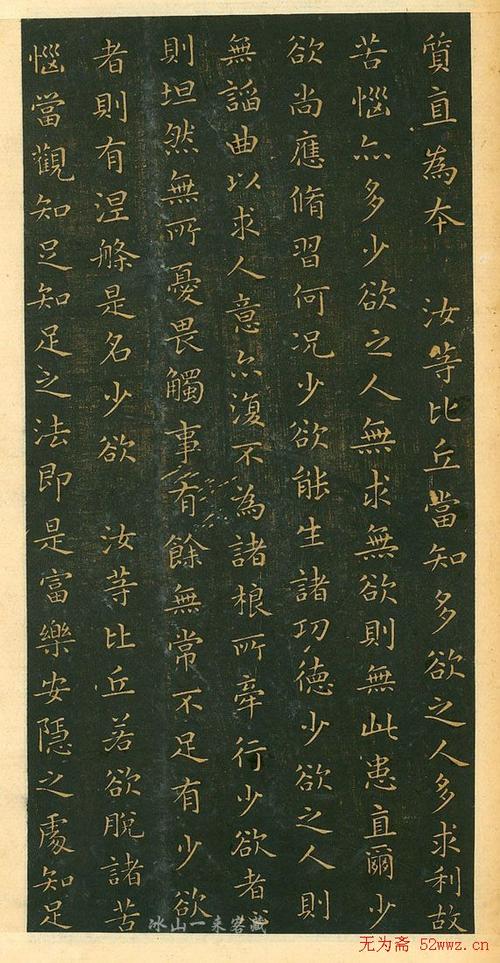 質直為本 汝等比丘當知多欲之人多求利故
苦惱亦多少欲之人無求無欲則無此患直爾少
欲尚應脩習何況少欲能生諸功德少欲之人則
無諂曲以求人意亦復不為諸根所牽行少欲者心
則坦然無所憂畏觸事有餘無常不足有少欲
者則有涅槃是名少欲 汝等比丘若欲脫諸苦
惱當觀知足知足之法即是富樂安隱之處知足
冰山一来客藏
无为斋 52wwz.cn